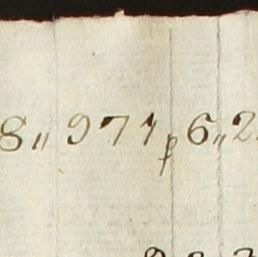 8„ 971 p 6„ 2